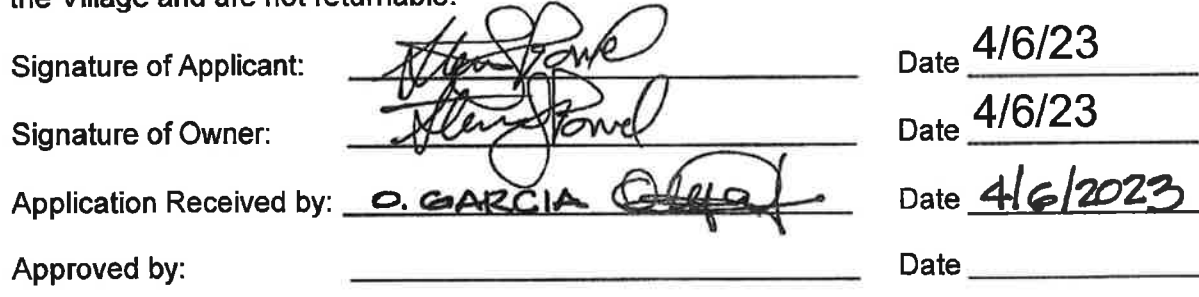 the Village and are not returnable.
Signature of Applicant: Date 4/6/23
Signature of Owner: Date 4/6/23
Application Received by: O. GARCIA Date 4/6/2023
Approved by: Date